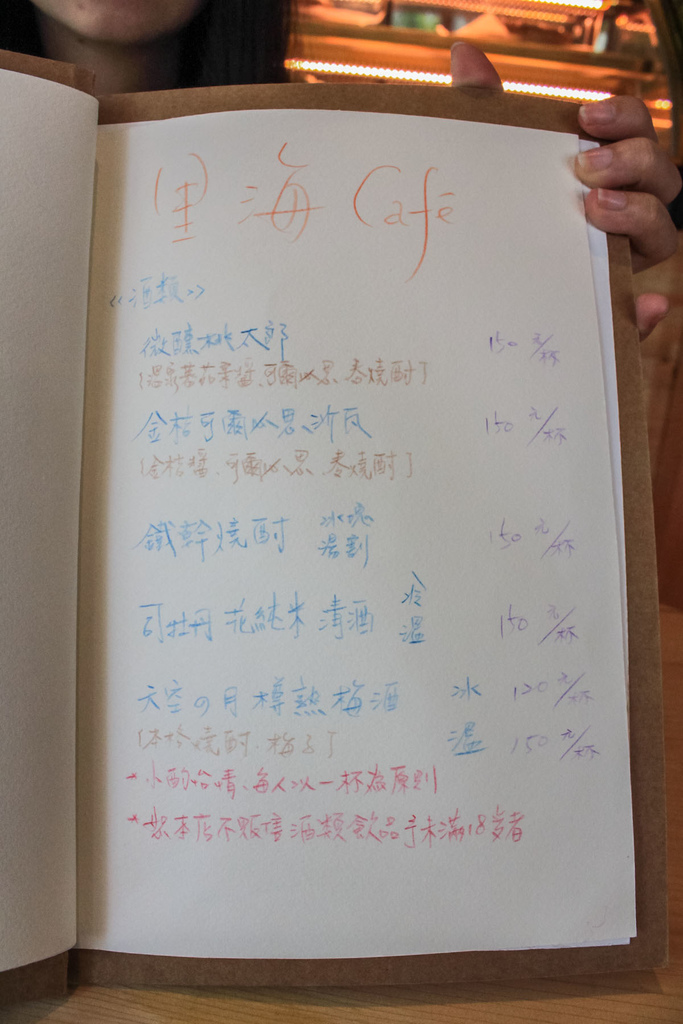 里海 Café
《酒類》
微醺桃太郎 150元/杯
(溫泉蕃茄果醬、可爾必思、麥燒酎)
金桔可爾必思沙瓦 150元/杯
(金桔醬、可爾必思、麥燒酎)
鐵幹燒酎 冰塊 湯割 150元/杯
司牡丹 花純米 清酒 冷 溫 150元/杯
天空の月樽熟梅酒 冰 120元/杯
(本格燒酎、梅子) 溫 150元/杯
*小酌怡情、每人以一杯為原則
*本店不販售酒類飲品予未滿18歲者